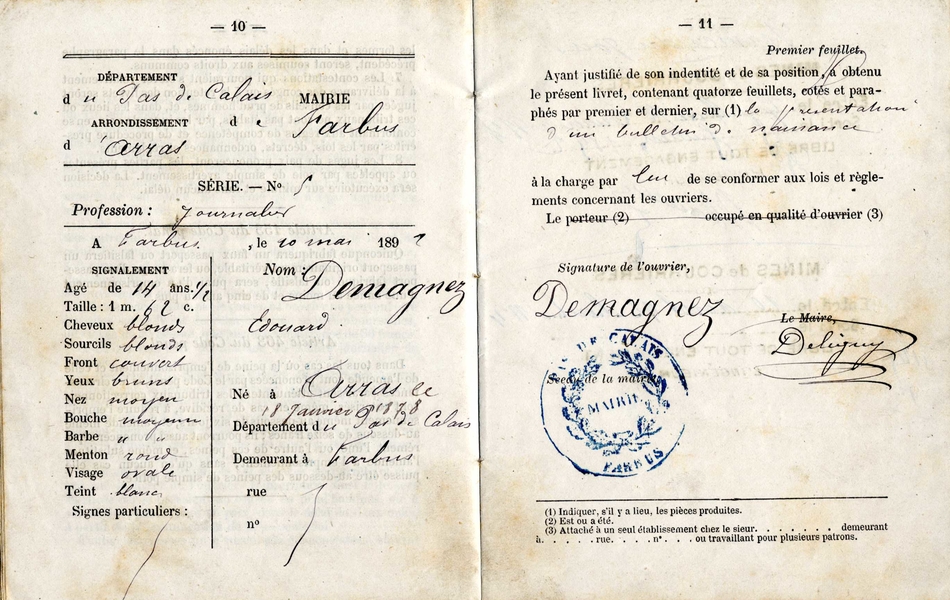 — 10 —
DÉPARTEMENT
du Pas de Calais
MAIRIE
ARRONDISSEMENT
de Farbus
d'Arras
SÉRIE. — No
Profession : Journalier
A Farbus, le 10 mai 189
SIGNALEMENT
Nom :
Agé de 14 ans 1/2
Demagnez
Taille : 1 m. 62 c.
Cheveux blonds
Edouard
Sourcils blonds
Front couvert
Yeux bruns
Nez moyen
Né à Arras le
18 Janvier 1878
Bouche moyenne
Département du Pas de Calais
Barbe " "
Menton rond
Demeurant à Farbus
Visage ovale
Teint blanc
rue
Signes particuliers :
no
— 11 —
Premier feuillet.
Ayant justifié de son indentité et de sa position, a obtenu
le présent livret, contenant quatorze feuillets, cotés et para-
phés par premier et dernier, sur (1) la présentation
d'un bulletin de naissance
à la charge par lui de se conformer aux lois et règle-
ments concernant les ouvriers.
Le porteur (2) occupé en qualité d'ouvrier (3)
Signature de l'ouvrier,
Demagnez
Le Maire,
PAS DE CALAIS
Sceau de la mairie
MAIRIE
FARBUS
(1) Indiquer, s'il y a lieu, les pièces produites.
(2) Est ou a été.
(3) Attaché à un seul établissement chez le sieur. . . . . . . . demeurant
à. . . . . . rue. . . . . no. . . . ou travaillant pour plusieurs patrons.